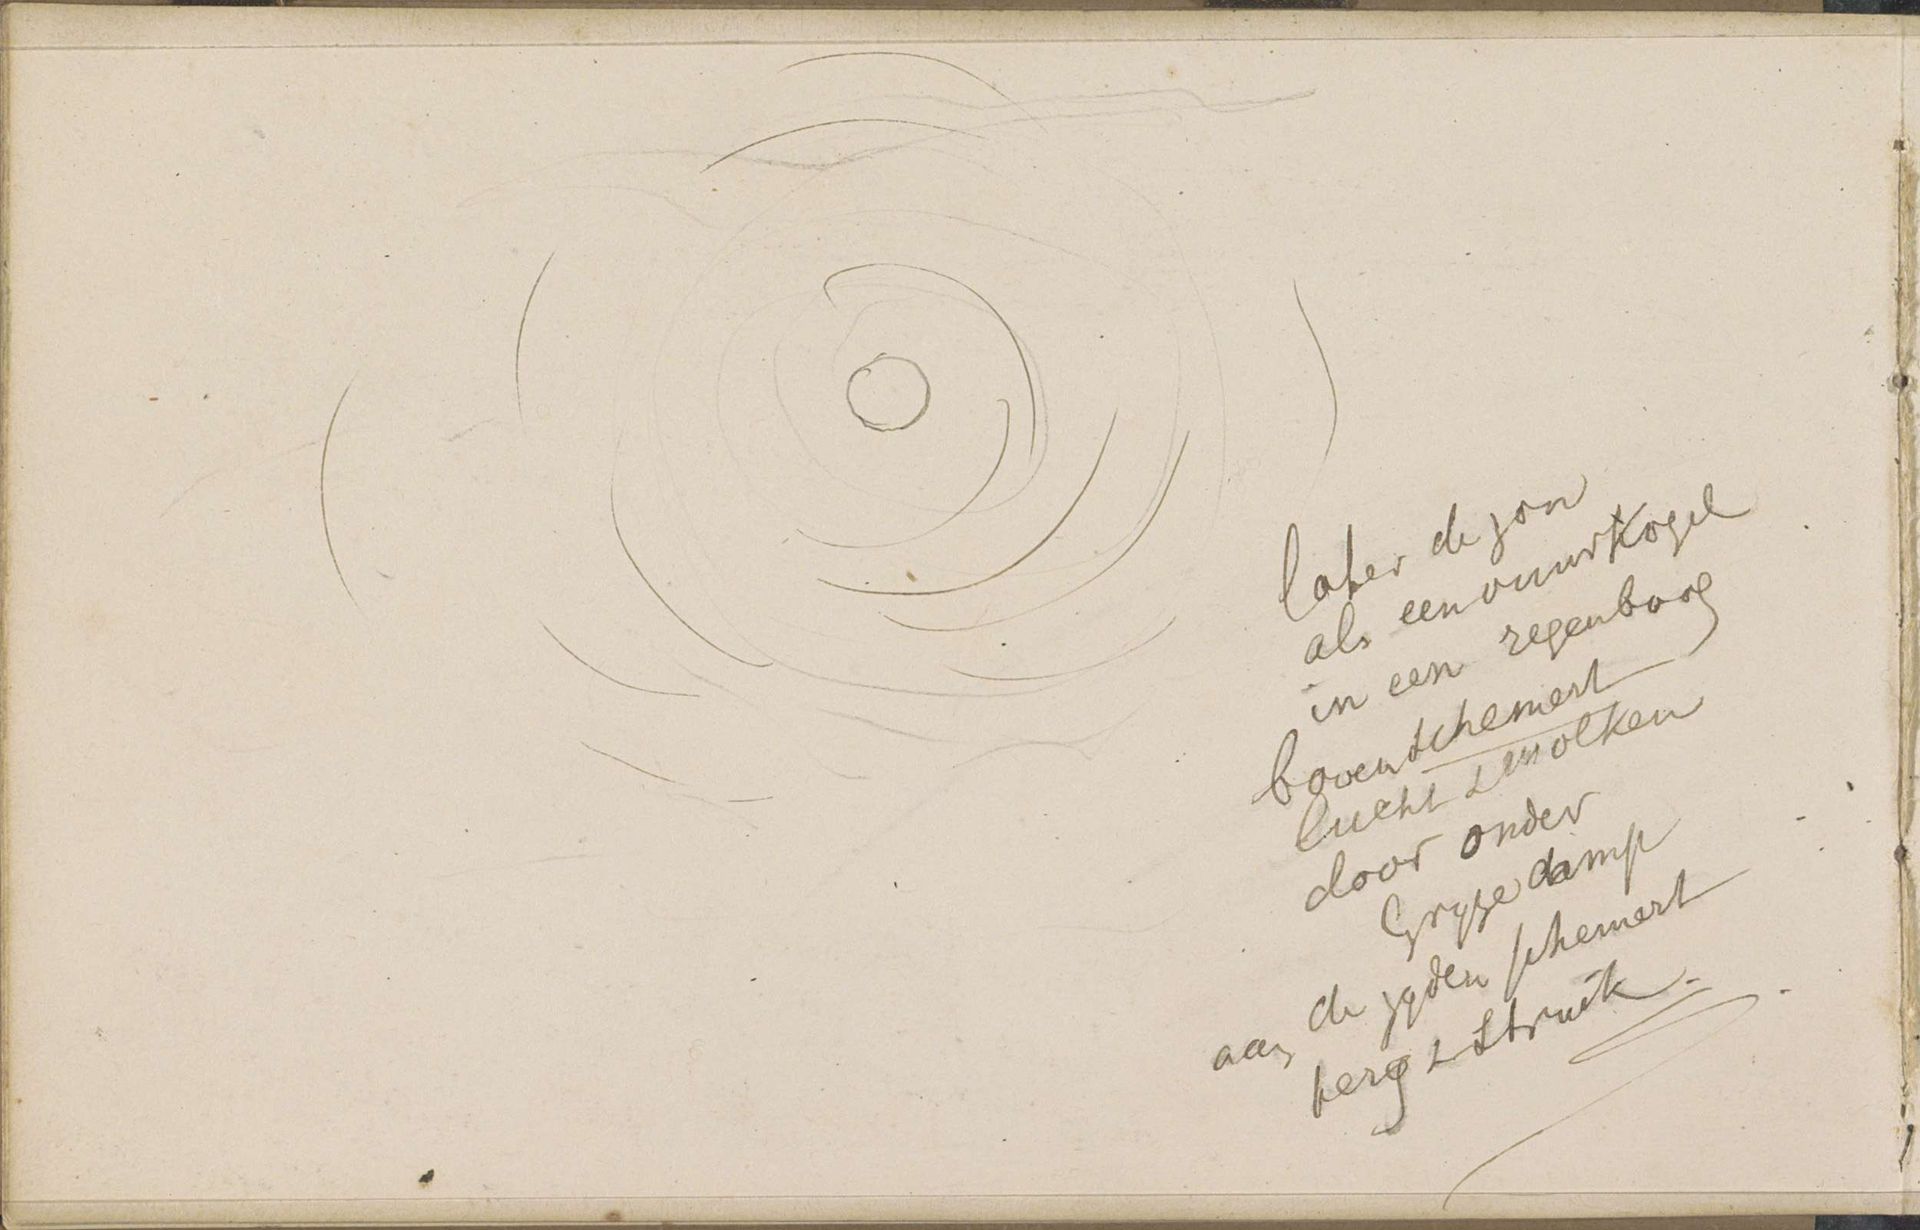 later de zon
als een vuurkogel
in een regenboog
boven schemert
lucht & wolken
door onder
Gryze damp
aan de zyden schemert
berg & struik.